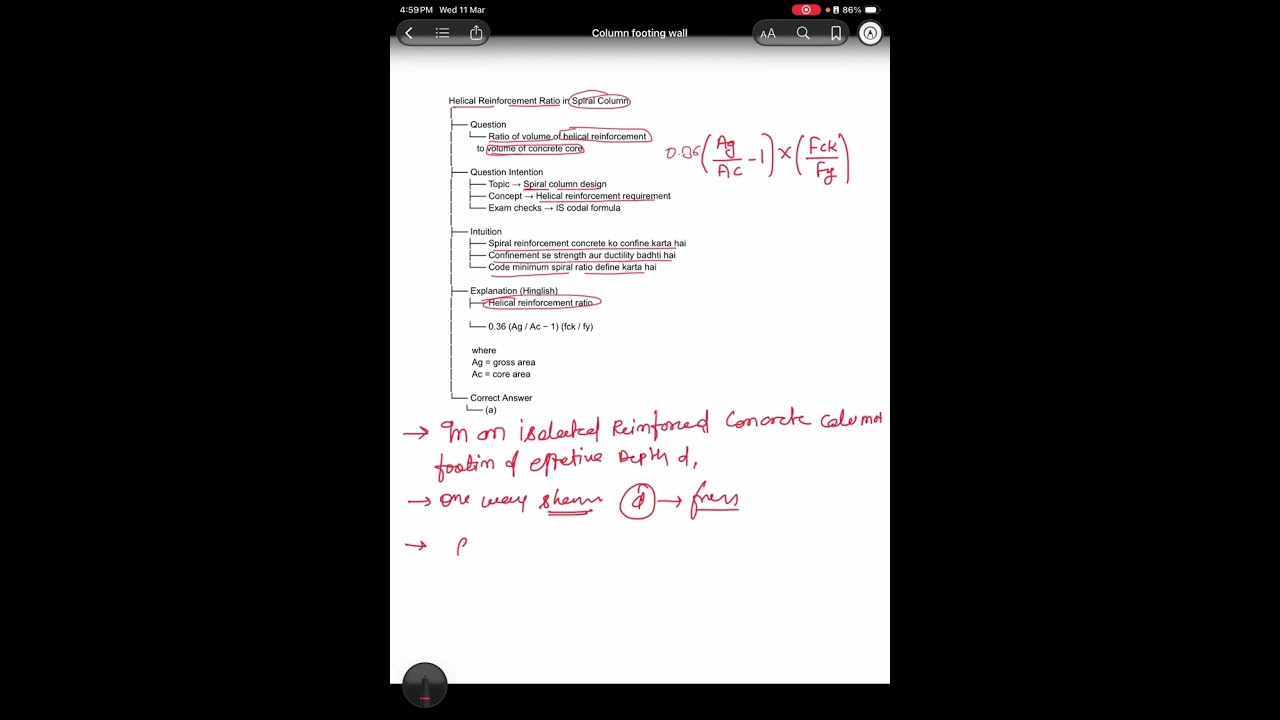 4:59 PM Wed 11 Mar
86%
Column footing wall
AA
Helical Reinforcement Ratio in Spiral Column
Question
Ratio of volume of helical reinforcement
to volume of concrete core
0.36 (Ag/Ac - 1) × (Fck/Fy)
Question Intention
Topic → Spiral column design
Concept → Helical reinforcement requirement
Exam checks → IS codal formula
Intuition
Spiral reinforcement concrete ko confine karta hai
Confinement se strength aur ductility badhti hai
Code minimum spiral ratio define karta hai
Explanation (Hinglish)
Helical reinforcement ratio
0.36 (Ag / Ac − 1) (fck / fy)
where
Ag = gross area
Ac = core area
Correct Answer
(a)
→ In an isolated Reinforced Concrete column
footin of effetive Depth d,
→ one way shear d →
→